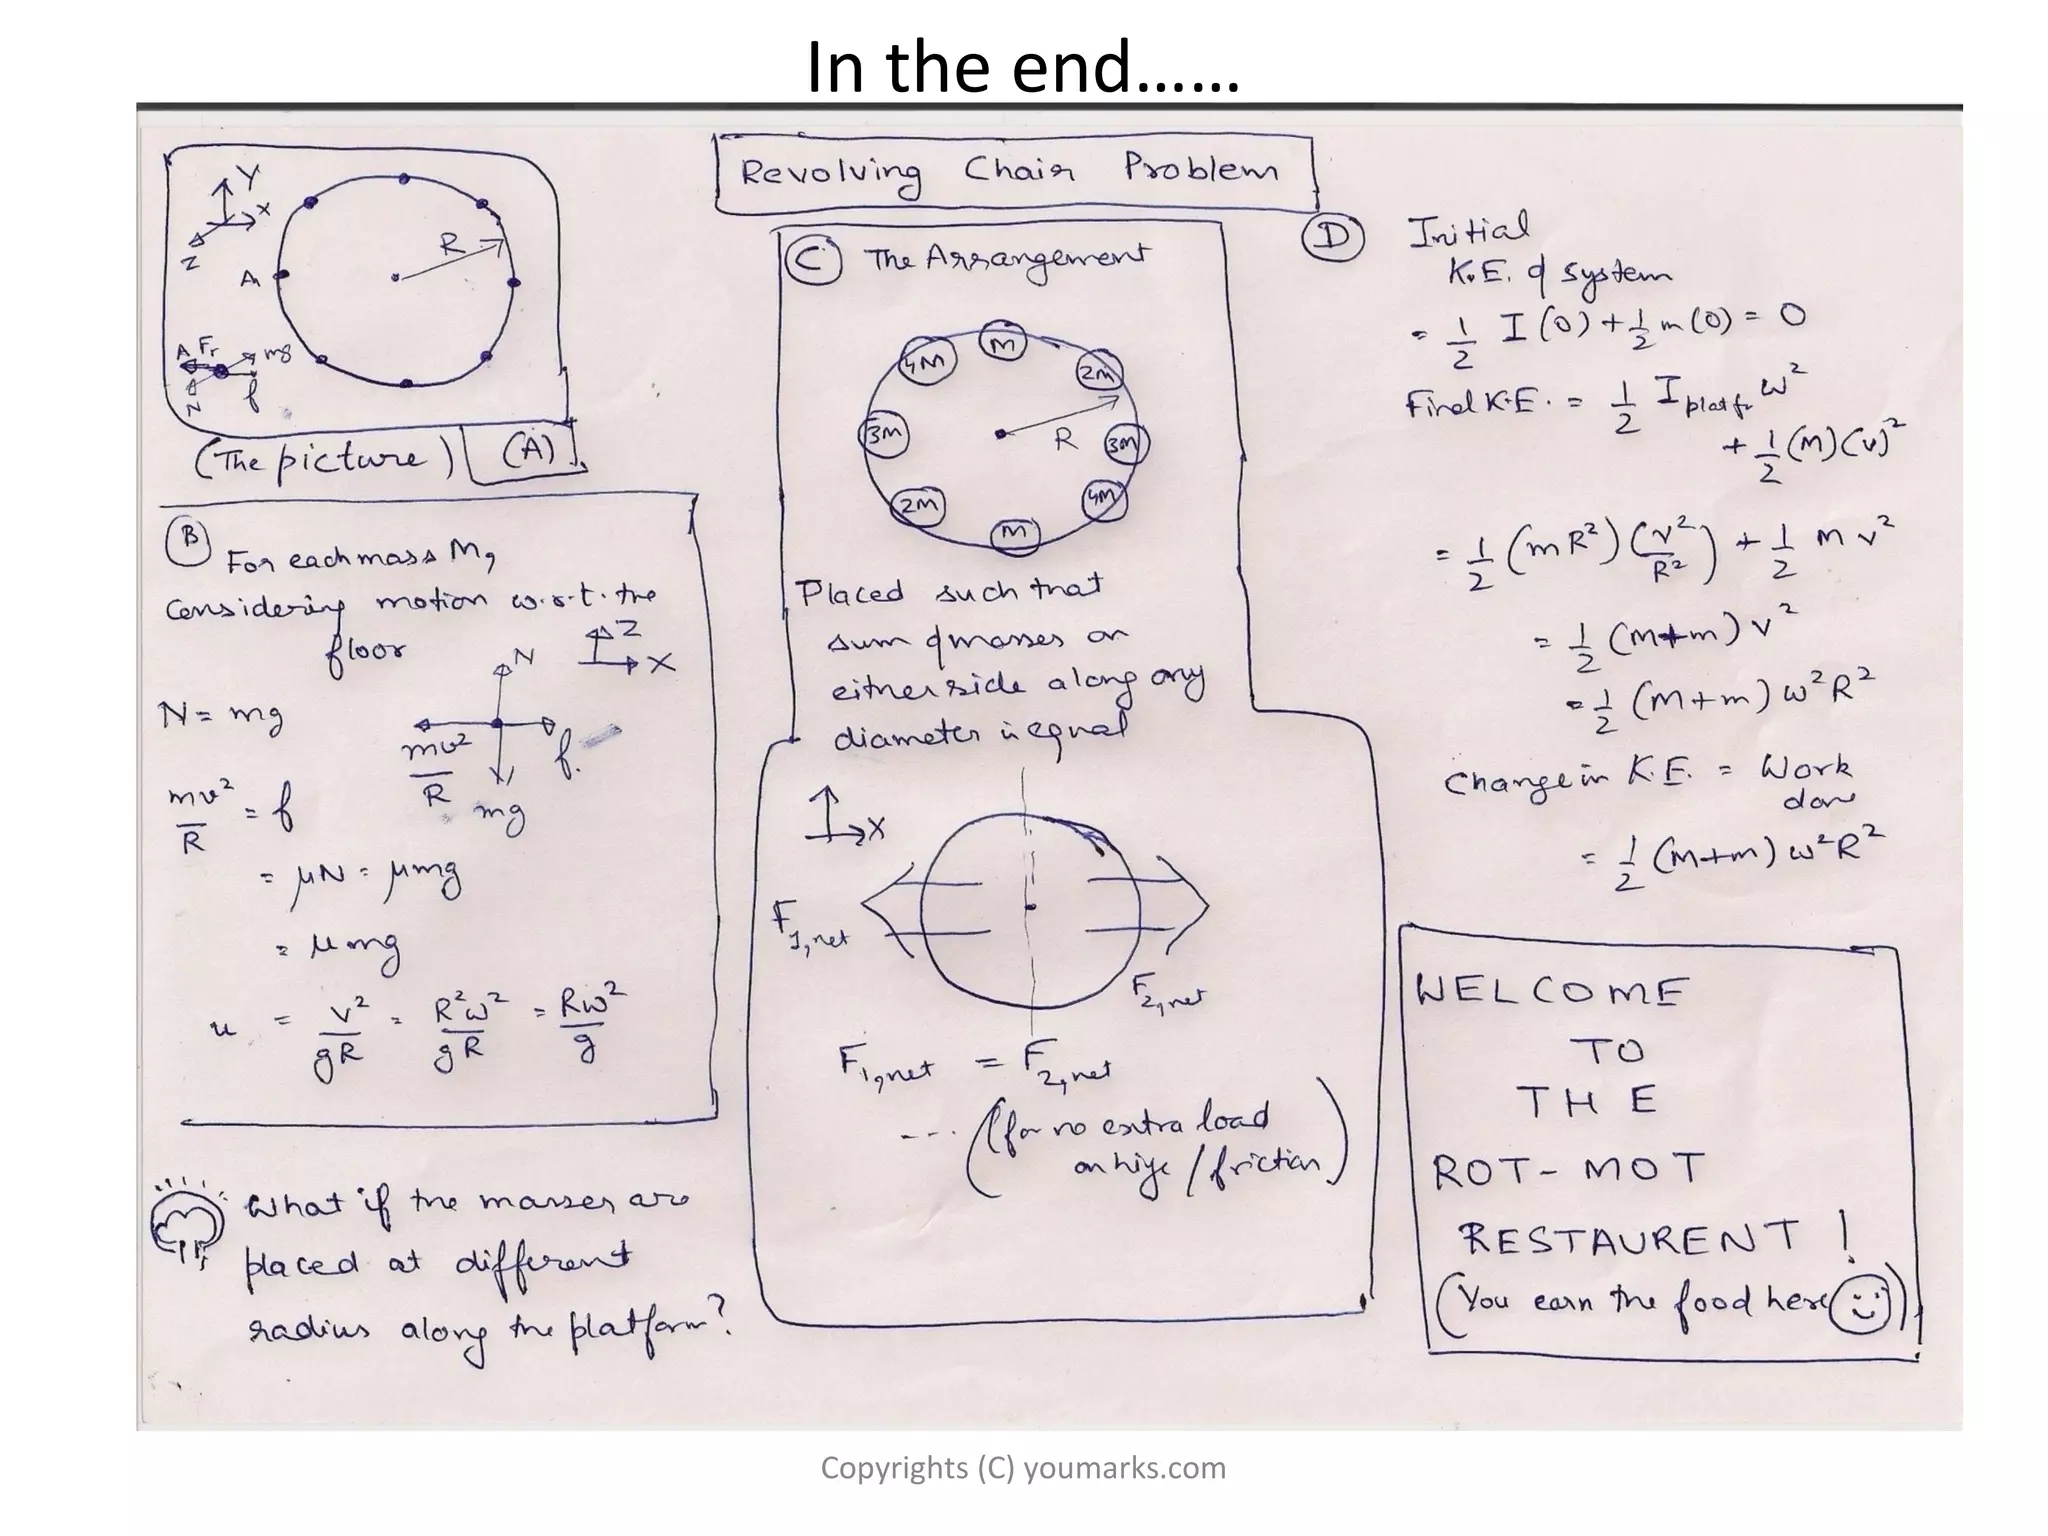 In the end……
Revolving Chair Problem
Y
X
Z
R
A
A Fr mg
N f
(The picture) (A)
B
For each mass M,
Considering motion w.r.t. the
floor
Z
X
N
N = mg
mv²/R f.
mg
mv²/R = f
= μN = μmg
= μmg
u = v²/gR = R²ω²/gR = Rω²/g
What if the masses are
placed at different
radius along the platform?
C The Arrangement
4M M 2M
3M R 3M
2M M 4M
Placed such that
sum of masses on
either side along any
diameter is equal
X
F1,net
F2,net
F1,net = F2,net
--- (for no extra load
on hige / friction)
D Initial
K.E. of system
= 1/2 I (0) + 1/2 m (0) = 0
Final K.E. = 1/2 I platfr ω²
+ 1/2 (M) (v)²
= 1/2 (mR²) (v²/R²) + 1/2 M v²
= 1/2 (M+m) v²
= 1/2 (M+m) ω²R²
Change in K.E. = Work
done
= 1/2 (M+m) ω²R²
WELCOME
TO
THE
ROT-MOT
RESTAURENT !
(You earn the food here)
Copyrights (C) youmarks.com